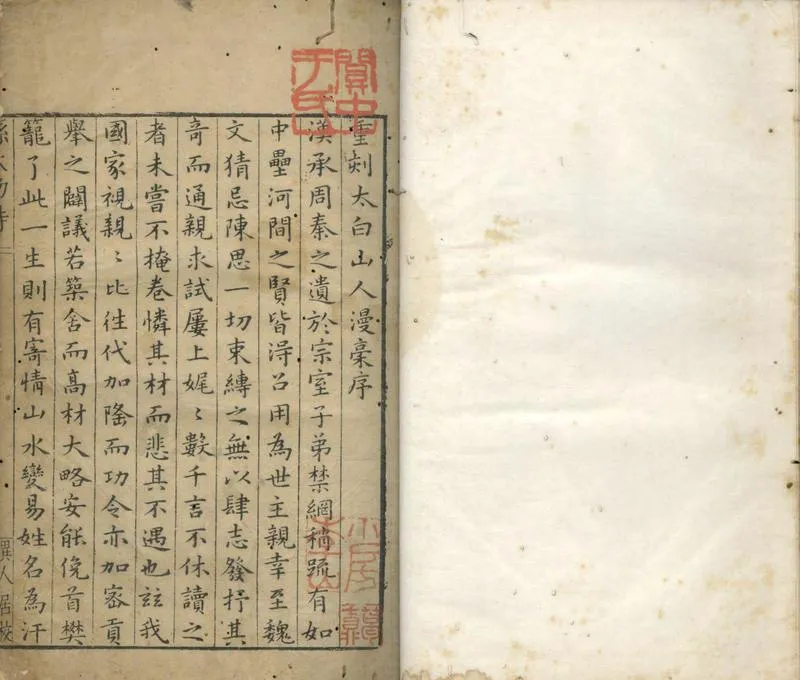 重刻太白山人漫稾序
漢承周秦之遺於宗室子弟禁網稍疏有如
中壘河間之賢皆淂召用為世主親幸至魏
文猜忌陳思一切束縛之無以肆志發抒其
奇而通親求試屢上娓〻數千言不休讀之
者未嘗不掩卷憐其材而悲其不遇也玆我
國家視親〻比往代加隆而功令亦加宻貢
舉之闢議若築舍而髙材大略安能俛首樊
籠了此一生則有寄情山水變易姓名為汗
異人居校
關中于氏